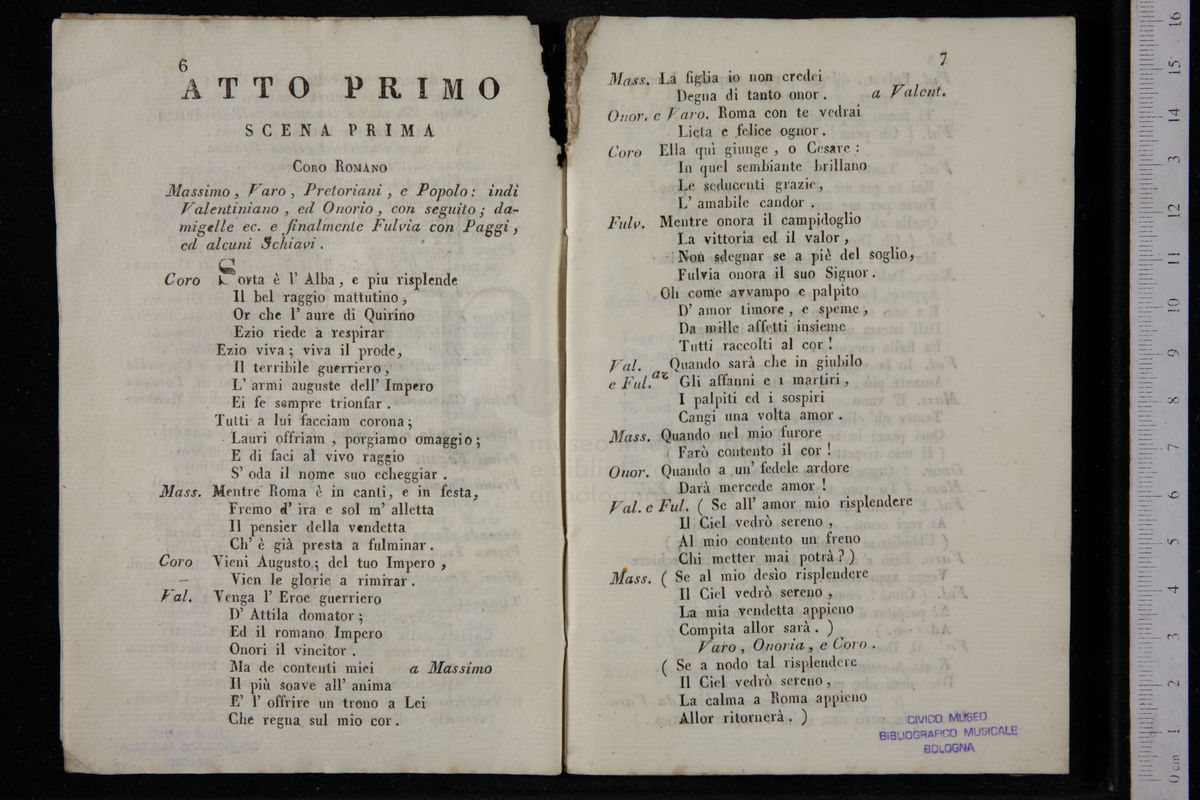 6
ATTO PRIMO
SCENA PRIMA
CORO ROMANO
Massimo, Varo, Pretoriani, e Popolo: indi
Valentiniano, ed Onorio, con seguito; da-
migelle ec. e finalmente Fulvia con Paggi,
ed alcuni Schiavi.
Coro Sorta è l' Alba, e piu risplende
Il bel raggio mattutino,
Or che l' aure di Quirino
Ezio riede a respirar
Ezio viva; viva il prode,
Il terribile guerriero,
L' armi auguste dell' Impero
Ei fe sempre trionfar.
Tutti a lui facciam corona;
Lauri offriam, porgiamo omaggio;
E di faci al vivo raggio
S' oda il nome suo echeggiar.
Mass. Mentre Roma è in canti, e in festa,
Fremo d' ira e sol m' alletta
Il pensier della vendetta
Ch' è già presta a fulminar.
Coro Vieni Augusto; del tuo Impero,
Vien le glorie a rimirar.
Val. Venga l' Eroe guerriero
D' Attila domator;
Ed il romano Impero
Onori il vincitor.
Ma de contenti miei a Massimo
Il più soave all' anima
E' l' offrire un trono a Lei
Che regna sul mio cor.
7
Mass. La figlia io non credei
Degna di tanto onor. a Valent.
Onor. e Varo. Roma con te vedrai
Lieta e felice ognor.
Coro Ella quì giunge, o Cesare:
In quel sembiante brillano
Le seducenti grazie,
L' amabile candor.
Fulv. Mentre onora il campidoglio
La vittoria ed il valor,
Non sdegnar se a piè del soglio,
Fulvia onora il suo Signor.
Oh come avvampo e palpito
D' amor timore, e speme,
Da mille affetti insieme
Tutti raccolti al cor!
Val. Quando sarà che in giubilo
e Ful. a2 Gli affanni e i martiri,
I palpiti ed i sospiri
Cangi una volta amor.
Mass. Quando nel mio furore
Farò contento il cor!
Onor. Quando a un' fedele ardore
Darà mercede amor!
Val. e Ful. ( Se all' amor mio risplendere
Il Ciel vedrò sereno,
Al mio contento un freno
Chi metter mai potrà? )
Mass. ( Se al mio desìo risplendere
Il Ciel vedrò sereno,
La mia vendetta appieno
Compita allor sarà. )
Varo, Onoria, e Coro.
( Se a nodo tal risplendere
Il Ciel vedrò sereno,
La calma a Roma appieno
Allor ritornerà. )
CIVICO MUSEO
BIBLIOGRAFICO MUSICALE
BOLOGNA
0 cm 1 2 3 4 5 6 7 8 9 10 11 12 13 14 15 16